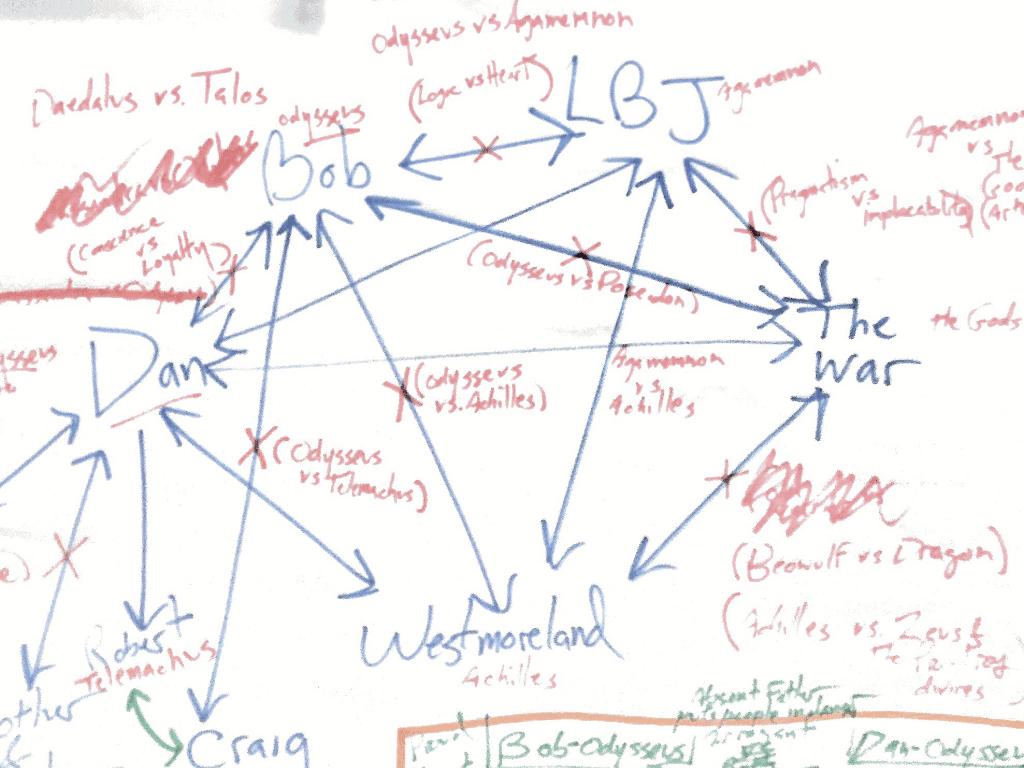 Odysseus vs Agamemnon
Daedalus vs. Talos
(Logic vs Heart)
LBJ
Agamemnon
odysseus
Bob
Agamemnon
vs
(Pragmatism
vs
implacability)
(Conscience
vs
Loyalty)
(Odysseus vs Poseidon)
The
War
The Gods
Dan
(Odysseus
vs. Achilles)
Agamemnon
vs
Achilles
(Odysseus
vs Telemachus)
(Beowulf vs Dragon)
(Achilles vs. Zeus &
The Pro-Troy
divines
Robert
Telemachus
Westmoreland
Achilles
Craig
Absent Father
puts people in place
Bob-Odysseus
Dan-Odysseu